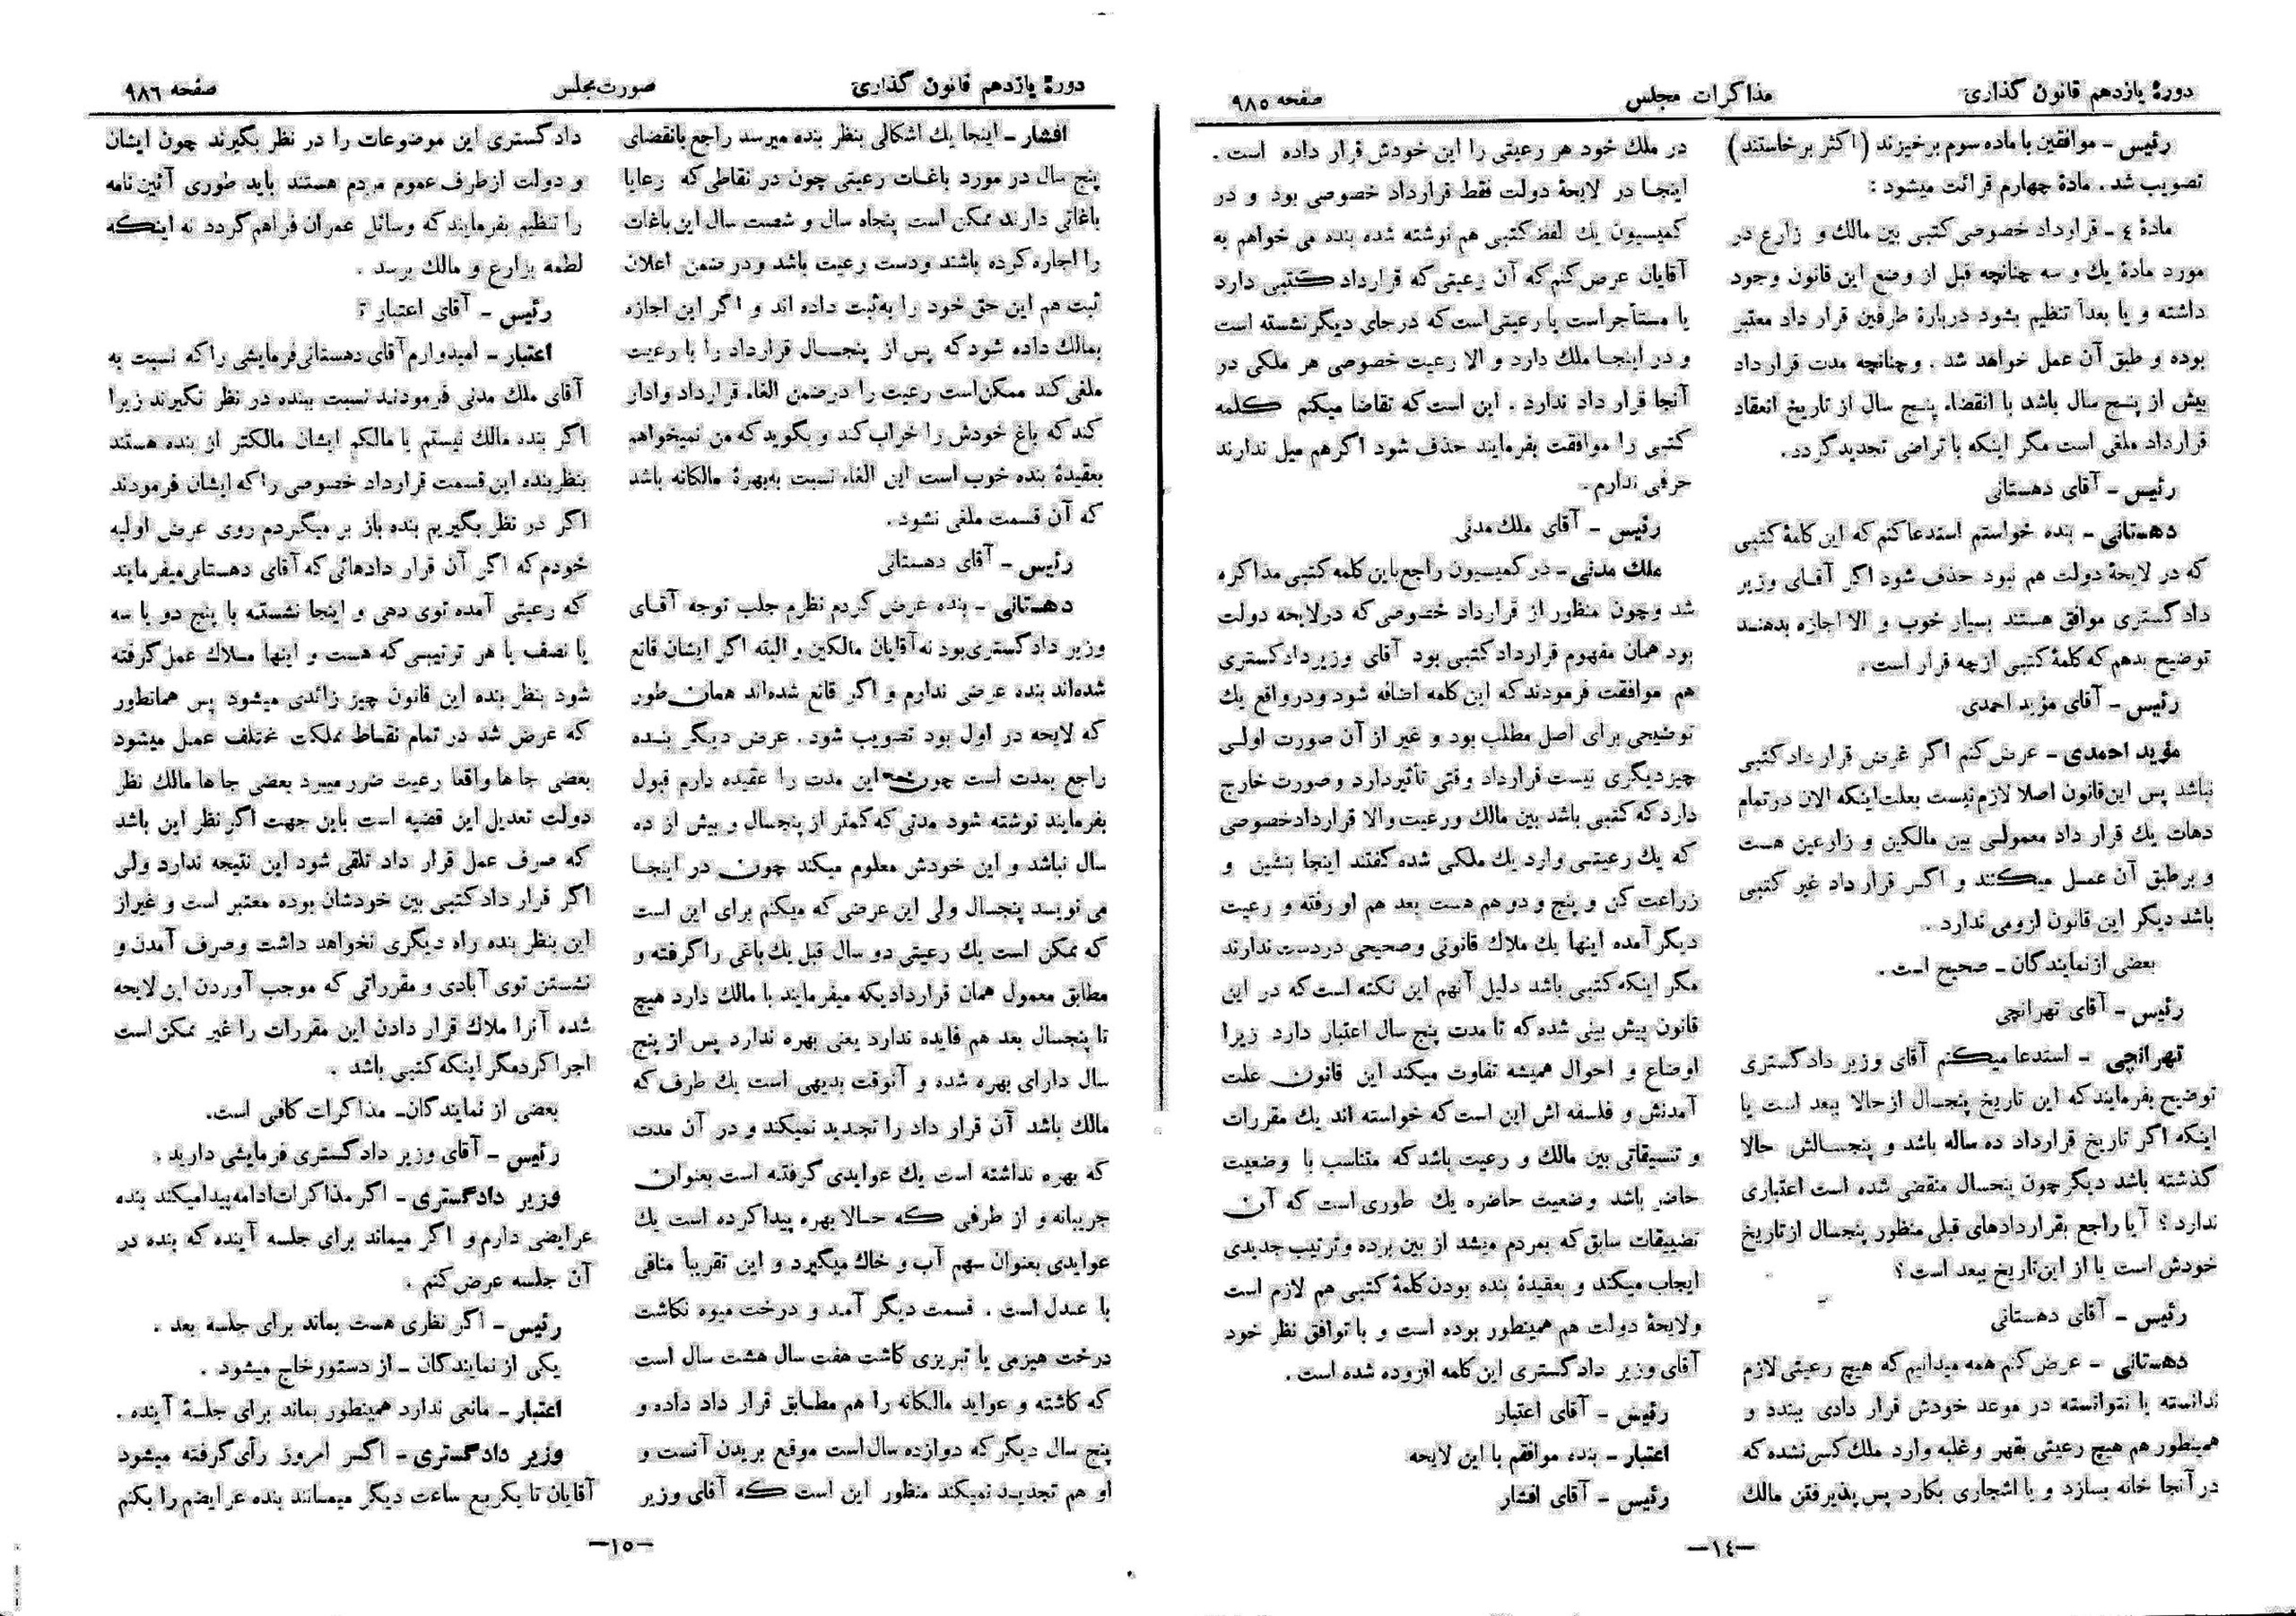 دورۀ یازدهم قانون گذاری
مذاکرات مجلس
صفحه ۹۸۵
رئیس - موافقین با ماده سوم برخیزند (اکثر برخاستند)
تصویب شد . مادۀ چهارم قرائت میشود :
مادۀ ٤ - قرارداد خصوصی کتبی بین مالك و زارع در
مورد مادۀ یك و سه چنانچه قبل از وضع این قانون وجود
داشته و یا بعداً تنظیم بشود دربارۀ طرفین قرار داد معتبر
بوده و طبق آن عمل خواهد شد . و چنانچه مدت قرار داد
بیش از پنج سال باشد با انقضاء پنج سال از تاریخ انعقاد
قرارداد ملغی است مگر اینکه با تراضی تجدید گردد .
رئیس - آقای دهستانی
دهستانی - بنده خواستم استدعا کنم که این کلمۀ کتبی
که در لایحۀ دولت هم نبود حذف شود اگر آقای وزیر
دادگستری موافق هستند بسیار خوب و الا اجازه بدهند
توضیح بدهم که کلمۀ کتبی از چه قرار است .
رئیس - آقای مؤید احمدی
مؤید احمدی - عرض کنم اگر غرض قرار داد کتبی
نباشد پس این قانون اصلا لازم نیست بعلت اینکه الان در تمام
دهات یك قرار داد معمولی بین مالکین و زارعین هست
و برطبق آن عمل میکنند و اگر قرار داد غیر کتبی
باشد دیگر این قانون لزومی ندارد .
بعضی از نمایندگان - صحیح است .
رئیس - آقای تهرانچی
تهرانچی - استدعا میکنم آقای وزیر دادگستری
توضیح بفرمایند که این تاریخ پنجسال از حالا ببعد است یا
اینکه اگر تاریخ قرارداد ده ساله باشد و پنجسالش حالا
گذشته باشد دیگر چون پنجسال منقضی شده است اعتباری
ندارد ؟ آیا راجع بقراردادهای قبلی منظور پنجسال از تاریخ
خودش است یا از این تاریخ ببعد است ؟
رئیس - آقای دهستانی
دهستانی - عرض کنم همه میدانیم که هیچ رعیتی لازم
ندانسته یا نتوانسته در موعد خودش قرار دادی ببندد و
همینطور هم هیچ رعیتی بقهر و غلبه وارد ملك کسی نشده که
در آنجا خانه بسازد و یا اشجاری بکارد پس پذیرفتن مالك
در ملك خود هر رعیتی را این خودش قرار داده است .
اینجا در لایحۀ دولت فقط قرارداد خصوصی بود و در
کمیسیون یك لفظ کتبی هم نوشته شده بنده می خواهم به
آقایان عرض کنم که آن رعیتی که قرارداد کتبی دارد
یا مستأجر است یا رعیتی است که در جای دیگر نشسته است
و در اینجا ملك دارد و الا رعیت خصوصی هر ملکی در
آنجا قرار داد ندارد . این است که تقاضا میکنم کلمه
کتبی را موافقت بفرمایند حذف شود اگر هم میل ندارند
حرفی ندارم .
رئیس - آقای ملك مدنی
ملك مدنی - در کمیسیون راجع باین کلمه کتبی مذاکره
شد و چون منظور از قرارداد خصوصی که در لایحه دولت
بود همان مفهوم قرارداد کتبی بود آقای وزیر دادگستری
هم موافقت فرمودند که این کلمه اضافه شود و در واقع یك
توضیحی برای اصل مطلب بود و غیر از آن صورت اولی
چیز دیگری نیست قرارداد وقتی تأثیر دارد و صورت خارج
دارد که کتبی باشد بین مالك و رعیت والا قرارداد خصوصی
که یك رعیتی وارد یك ملکی شده گفتند اینجا بنشین و
زراعت کن و پنج و دو هم هست بعد هم او رفته و رعیت
دیگر آمده اینها یك ملاك قانونی و صحیحی در دست ندارند
مگر اینکه کتبی باشد دلیل آنهم این نکته است که در این
قانون پیش بینی شده که تا مدت پنج سال اعتبار دارد زیرا
اوضاع و احوال همیشه تفاوت میکند این قانون علت
آمدنش و فلسفه اش این است که خواسته اند یك مقررات
و تنسیقاتی بین مالك و رعیت باشد که متناسب با وضعیت
حاضر باشد وضعیت حاضره یك طوری است که آن
تضییقات سابق که بمردم میشد از بین برده و ترتیب جدیدی
ایجاب میکند و بعقیدۀ بنده بودن کلمۀ کتبی هم لازم است
و لایحۀ دولت هم همینطور بوده است و با توافق نظر خود
آقای وزیر دادگستری این کلمه افزوده شده است .
رئیس - آقای اعتبار
اعتبار - بنده موافقم با این لایحه
رئیس - آقای افشار
-١٤-
دورۀ یازدهم قانون گذاری
صورت مجلس
صفحه ۹۸٦
افشار - اینجا یك اشکالی بنظر بنده میرسد راجع بانقضای
پنج سال در مورد باغات رعیتی چون در نقاطی که رعایا
باغاتی دارند ممکن است پنجاه سال و شصت سال این باغات
را اجاره کرده باشند و دست رعیت باشد و در ضمن اعلان
ثبت هم این حق خود را به ثبت داده اند و اگر این اجازه
بمالك داده شود که پس از پنجسال قرارداد را با رعیت
ملغی کند ممکن است رعیت را در ضمن الغاء قرارداد وادار
کند که باغ خودش را خراب کند و بگوید که من نمیخواهم
بعقیدۀ بنده خوب است این الغاء نسبت به بهرۀ مالکانه باشد
که آن قسمت ملغی نشود .
رئیس - آقای دهستانی
دهستانی - بنده عرض کردم نظرم جلب توجه آقای
وزیر دادگستری بود نه آقایان مالکین و البته اگر ایشان قانع
شده‌اند بنده عرضی ندارم و اگر قانع شده‌اند همان طور
که لایحه در اول بود تصویب شود . عرض دیگر بنده
راجع بمدت است چون این مدت را عقیده دارم قبول
بفرمایند نوشته شود مدتی که کمتر از پنجسال و بیش از ده
سال نباشد و این خودش معلوم میکند چون در اینجا
می نویسد پنجسال ولی این عرضی که میکنم برای این است
که ممکن است یك رعیتی دو سال قبل یك باغی را گرفته و
مطابق معمول همان قراردادیکه میفرمایند با مالك دارد هیچ
تا پنجسال بعد هم فایده ندارد یعنی بهره ندارد پس از پنج
سال دارای بهره شده و آنوقت بدیهی است یك طرف که
مالك باشد آن قرار داد را تجدید نمیکند و در آن مدت
که بهره نداشته است یك عوایدی گرفته است بعنوان
جریبانه و از طرفی که حالا بهره پیدا کرده است یك
عوایدی بعنوان سهم آب و خاك میگیرد و این تقریباً منافی
با عدل است . قسمت دیگر آمد و درخت میوه نکاشت
درخت هیزمی یا تبریزی کاشت هفت سال هشت سال است
که کاشته و عواید مالکانه را هم مطابق قرار داد داده و
پنج سال دیگر که دوازده سال است موقع بریدن آنست و
او هم تجدید نمیکند منظور این است که آقای وزیر
دادگستری این موضوعات را در نظر بگیرند چون ایشان
و دولت از طرف عموم مردم هستند باید طوری آئین نامه
را تنظیم بفرمایند که وسائل عمران فراهم گردد نه اینکه
لطمه بزارع و مالك برسد .
رئیس - آقای اعتبار ؟
اعتبار - امیدوارم آقای دهستانی فرمایشی را که نسبت به
آقای ملك مدنی فرمودند نسبت ببنده در نظر نگیرند زیرا
اگر بنده مالك نیستم یا مالکم ایشان مالکتر از بنده هستند
بنظر بنده این قسمت قرارداد خصوصی را که ایشان فرمودند
اگر در نظر بگیریم بنده باز بر میگردم روی عرض اولیه
خودم که اگر آن قرار دادهائی که آقای دهستانی میفرمایند
که رعیتی آمده توی دهی و اینجا نشسته با پنج دو یا سه
یا نصف یا هر ترتیبی که هست و اینها ملاك عمل گرفته
شود بنظر بنده این قانون چیز زائدی میشود پس همانطور
که عرض شد در تمام نقاط مملکت مختلف عمل میشود
بعضی جا ها واقعا رعیت ضرر میبرد بعضی جا ها مالك نظر
دولت تعدیل این قضیه است باین جهت اگر نظر این باشد
که صرف عمل قرار داد تلقی شود این نتیجه ندارد ولی
اگر قرار داد کتبی بین خودشان بوده معتبر است و غیر از
این بنظر بنده راه دیگری نخواهد داشت و صرف آمدن و
نشستن توی آبادی و مقرراتی که موجب آوردن این لایحه
شده آنرا ملاك قرار دادن این مقررات را غیر ممکن است
اجرا کرد مگر اینکه کتبی باشد .
بعضی از نمایندگان - مذاکرات کافی است.
رئیس - آقای وزیر دادگستری فرمایشی دارید .
وزیر دادگستری - اگر مذاکرات ادامه پیدا میکند بنده
عرایضی دارم و اگر میماند برای جلسه آینده که بنده در
آن جلسه عرض کنم .
رئیس - اگر نظری هست بماند برای جلسه بعد .
یکی از نمایندگان - از دستور خاج میشود .
اعتبار - مانعی ندارد همینطور بماند برای جلسۀ آینده .
وزیر دادگستری - اگر امروز رأی گرفته میشود
آقایان تا یکربع ساعت دیگر میمانند بنده عرایضم را بکنم
-١٥-